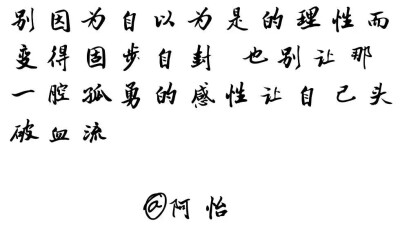 别因为自以为是的理性而
变得固步自封 也别让那
一腔孤勇的感性让自己头
破血流
@阿怡